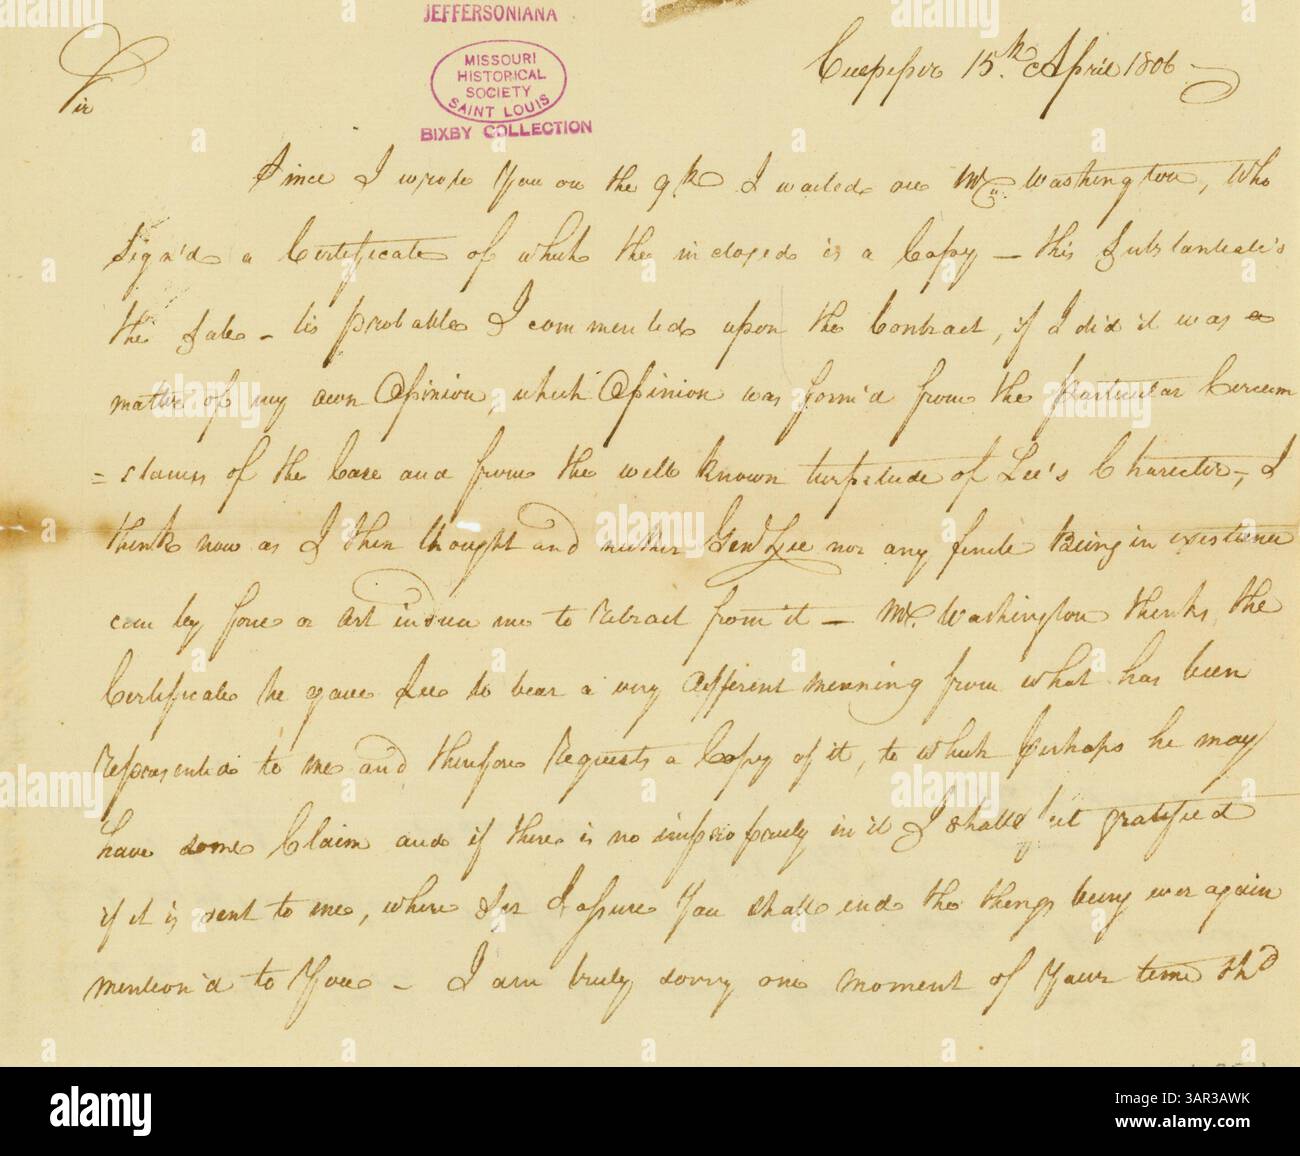 JEFFERSONIANA
MISSOURI
HISTORICAL
SOCIETY
SAINT LOUIS
BIXBY COLLECTION
Culpeper 15th. April 1806
Sir
Since I wrote You on the 9th I waited on Mr. Washington, Who
Sign'd a Certificate of which the inclosed is a Copy – this Substantiate's
the Sale – tis probable I commented upon the Contract, if I did it was a
matter of my own Opinion, which Opinion was form'd from the particular Circum
= stances of the Case and from the well known turpitude of Lee's Charecter, I
think now as I then thought and neither Genl Lee nor any finite Being in existence
can by force or art induce me to retract from it – Mr. Washington thinks, the
Certificate he gave Lee to bear a very different meaning from what has been
Represented to me and therefore Requests a Copy of it, to which perhaps he may
have some Claim and if there is no impropriety in it I shall be gratified
if it is sent to me, where Sir I assure You shall end the things being ever again
mention'd to You – I am truly sorry one moment of Your time Shd
alamy
alamy
Image ID: 3AR3AWK
www.alamy.com